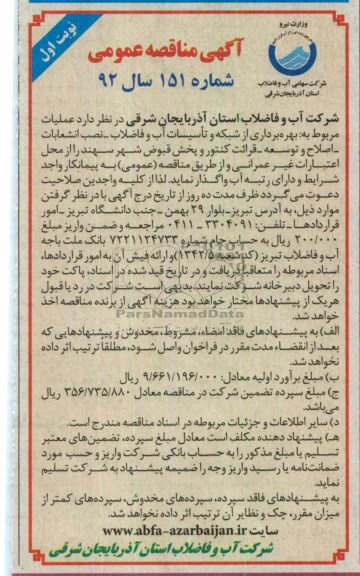 نوبت اول
وزارت نیرو
شرکت سهامی آب و فاضلاب
استان آذربایجان شرقی
آگهی مناقصه عمومی
شماره ۱۵۱ سال ۹۲
شرکت آب و فاضلاب استان آذربایجان شرقی در نظر دارد عملیات
مربوط به: بهره‌برداری از شبکه و تأسیسات آب و فاضلاب ـ نصب انشعابات
ـ اصلاح و توسعه ـ قرائت کنتور و پخش قبوض شهر سهند را از محل
اعتبارات غیر عمرانی و از طریق مناقصه (عمومی) به پیمانکار واجد
شرایط و دارای رتبه آب واگذار نماید. لذا از کلیه واجدین صلاحیت
دعوت می‌گردد ظرف مدت ده روز از تاریخ درج آگهی با در نظر گرفتن
موارد ذیل، به آدرس تبریز ـ بلوار ۲۹ بهمن ـ جنب دانشگاه تبریز ـ امور
قراردادها ـ تلفن: ۳۳۰۴۰۹۱ ـ ۰۴۱۱ مراجعه و ضمن واریز مبلغ
۲۰۰/۰۰۰ ریال به حساب جام شماره ۷۲۲۱۱۲۴۷۳۳ بانک ملت باجه
آب و فاضلاب تبریز (کد شعبه ۱۳۴۲/۵) و ارائه فیش آن به امور قراردادها،
اسناد مربوطه را متعاقباً دریافت و در تاریخ قید شده در اسناد، پاکت خود
را تحویل دبیرخانه شرکت نمایند. بدیهی است شرکت در رد یا قبول
هریک از پیشنهادها مختار خواهد بود هزینه آگهی از برنده مناقصه اخذ
خواهد شد.
ParsNamadData
الف) به پیشنهادهای فاقد امضاء، مشروط، مخدوش و پیشنهادهایی که
بعد از انقضاء مدت مقرر در فراخوان واصل شود، مطلقاً ترتیب اثر داده
نخواهد شد.
ب) مبلغ برآورد اولیه معادل: ۹/۶۶۱/۱۹۶/۰۰۰ ریال
ج) مبلغ سپرده تضمین شرکت در مناقصه معادل ۳۵۶/۷۳۵/۸۸۰ ریال
می‌باشد.
د) سایر اطلاعات و جزئیات مربوطه در اسناد مناقصه مندرج است.
هـ) پیشنهاد دهنده مکلف است معادل مبلغ سپرده، تضمین‌های معتبر
تسلیم یا مبلغ مذکور را به حساب بانکی شرکت واریز و حسب مورد
ضمانت‌نامه یا رسید واریز وجه را ضمیمه پیشنهاد به شرکت تسلیم
نماید.
به پیشنهادهای فاقد سپرده، سپرده‌های مخدوش، سپرده‌های کمتر از
میزان مقرر، چک و نظایر آن ترتیب اثر داده نخواهد شد.
سایت www.abfa-azarbaijan.ir
شرکت آب و فاضلاب استان آذربایجان شرقی